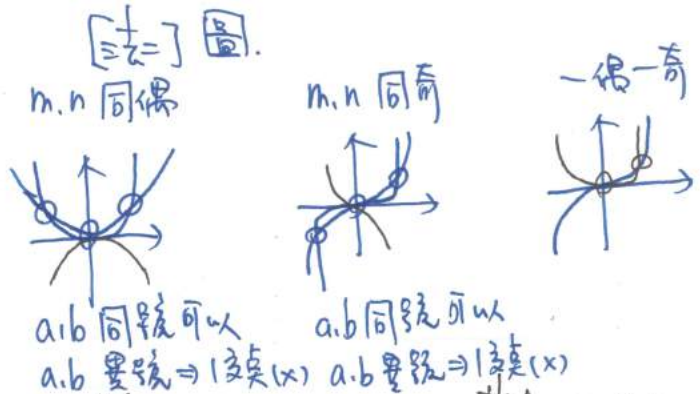 [三去二] 圖.
m.n 同偶
m.n 同奇
一偶一奇
a.b 同號可以
a.b 異號⇒1交點(x)
a.b 同號可以
a.b 異號⇒1交點(x)